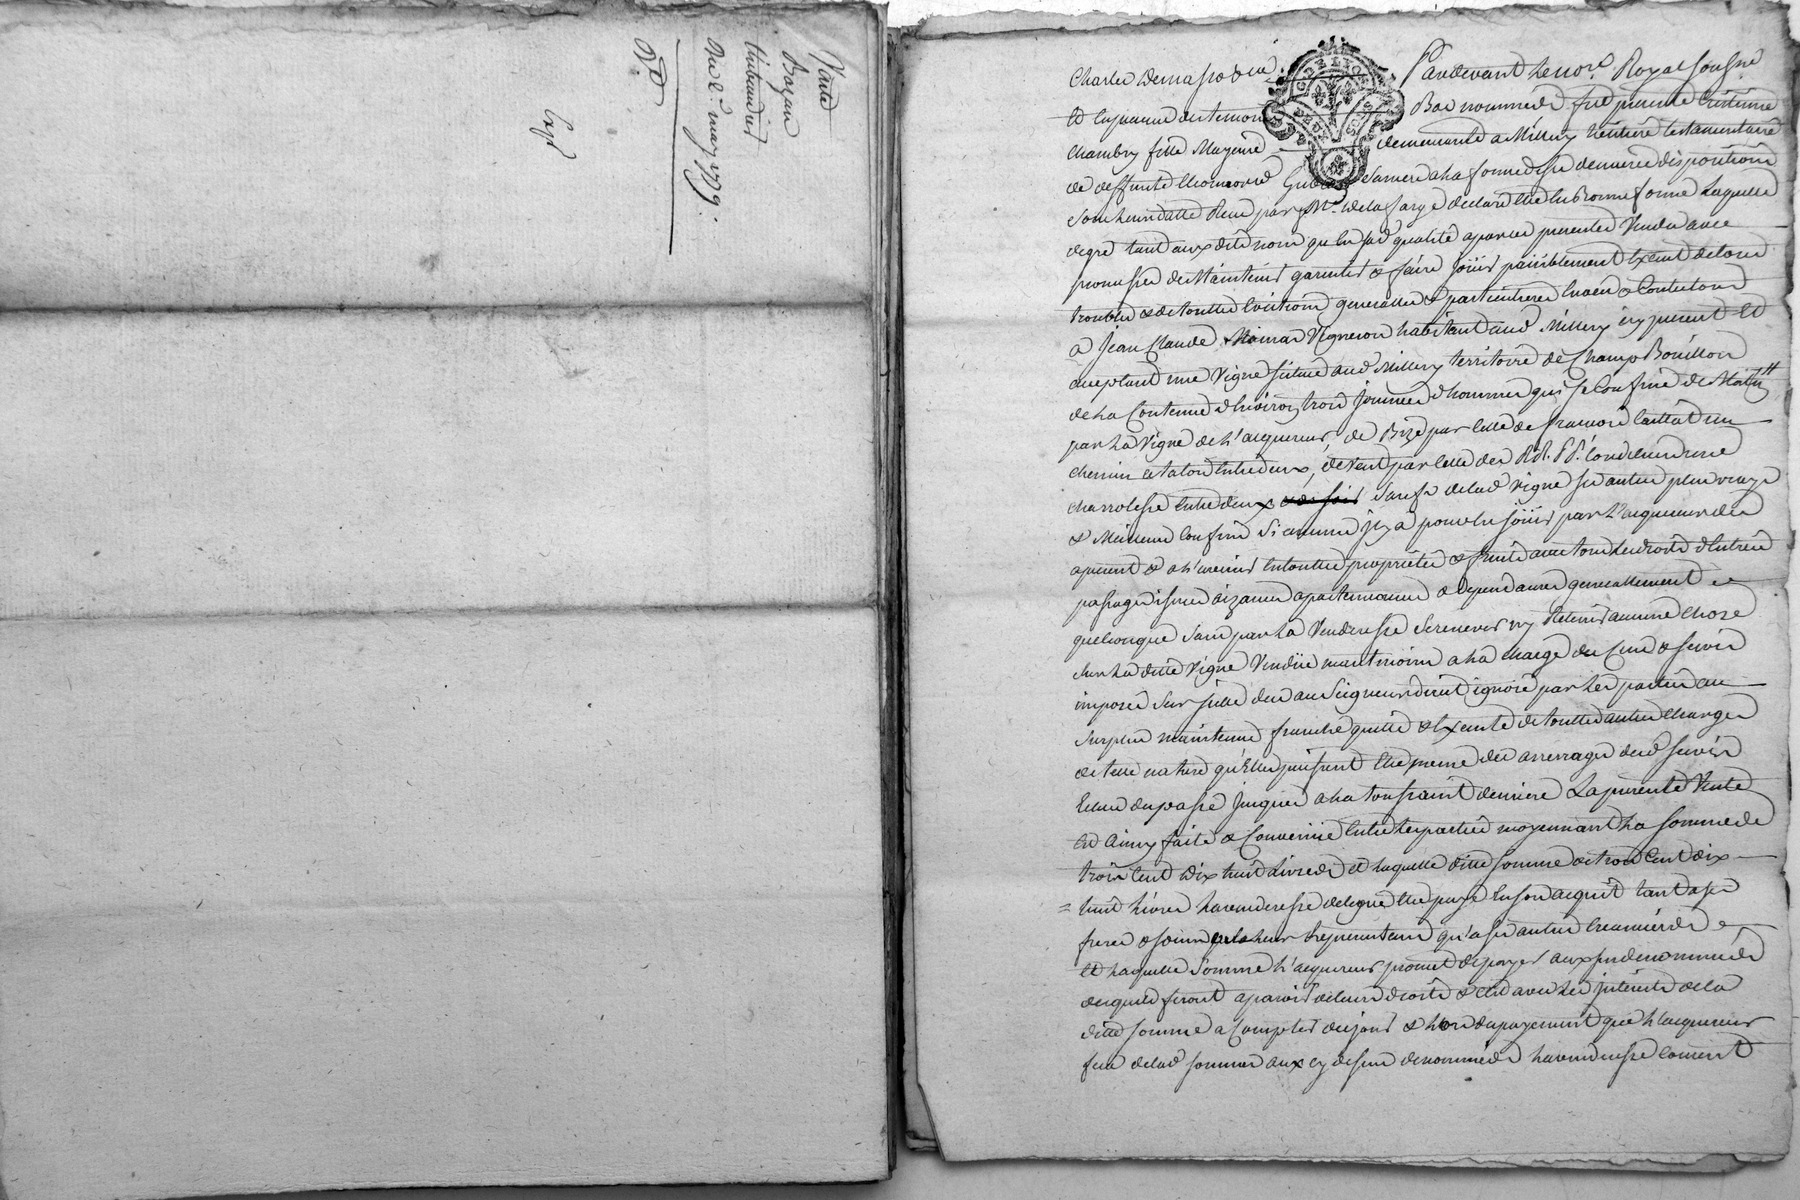 Vente
Bazan
thibaudier
Du 2e. may 1779.
Expé
Pardevant le nore. Royal sousné.
Charles Demassodié
GEN DE LYON
DEUX SOLS
et en presence des temoins Bas nommés fut presente Cristinne
Chambry fille Majeure demeurante a Millery heritiere testamentaire
de deffunte Sa mere a la forme de ses dernieres dispositions
sous leur datte Reçu par Me. Delafarge declaré etre en Bonne forme Laquelle
de gré tant aux dits noms qu'en sad. qualité a par ces presentes Vendu avec
promesse de Maintenir garentir & faire Jouir paisiblement Exent de tous
troubles & de touttes Evictions generalles & particulieres Envers & Contre tous
a Jean Claude Vigneron habitant aud. Millery icy present Et
acceptant une Vigne situéé aud. Millery territoire de Champ Bouillon
de la Contenue d'Environ trois Journées d'hommes qui se Confine de Matin
par la Vigne de l'acquereur, de Bize par celle de francois un
chemin et talon Entre deux, de Vent par celle des RR. PP. une
charrolesse Entre deux Sauf de lad. Vigne ses autres plus vrays
& Meilleurs Confins Si aucuns Il y a pour En Jouir par L'acquereur des
apresent & a l'avenir En touttes proprietés & fruits avec tous Les droits d'Entrées
passages issues aizances apartenances & dependances generallement
quelconque Sans par La Venderesse Se reserver ny Retenir aucune Chose
Sur La ditte Vigne Vendüe neantmoins a la charge des Cens & servis
imposés Sur jcelle dus au Seigneur direct ignoré par Les parties au
Surplus maintenue franche quitte & Exente de touttes autres Charges
de telle nature qu'Elles puissent Etre meme des arrerages desd. servis
Echus du passé Jusques a la toussaint derniere La presente Vente
Est Ainsy faite & Convenüe Entre les parties moyennant La Somme de
trois Cent dix huit Livres Et Laquelle ditte Somme de trois Cent dix
= huit Livres La venderesse delegue Etre payé En son acquit tant a ses
freres & soeurs ou a leurs Representans qu'a ses autres Creanciers
Et Laquelle Somme L'acquereur promet de payer aux susdenommés
des quils feront aparoir de leurs droits & Ce avec Les Interets de la
ditte Somme a Compter du jour & lors du payement que L'acquereur
fera de lad. somme aux cy dessus denommés La venderesse Consent